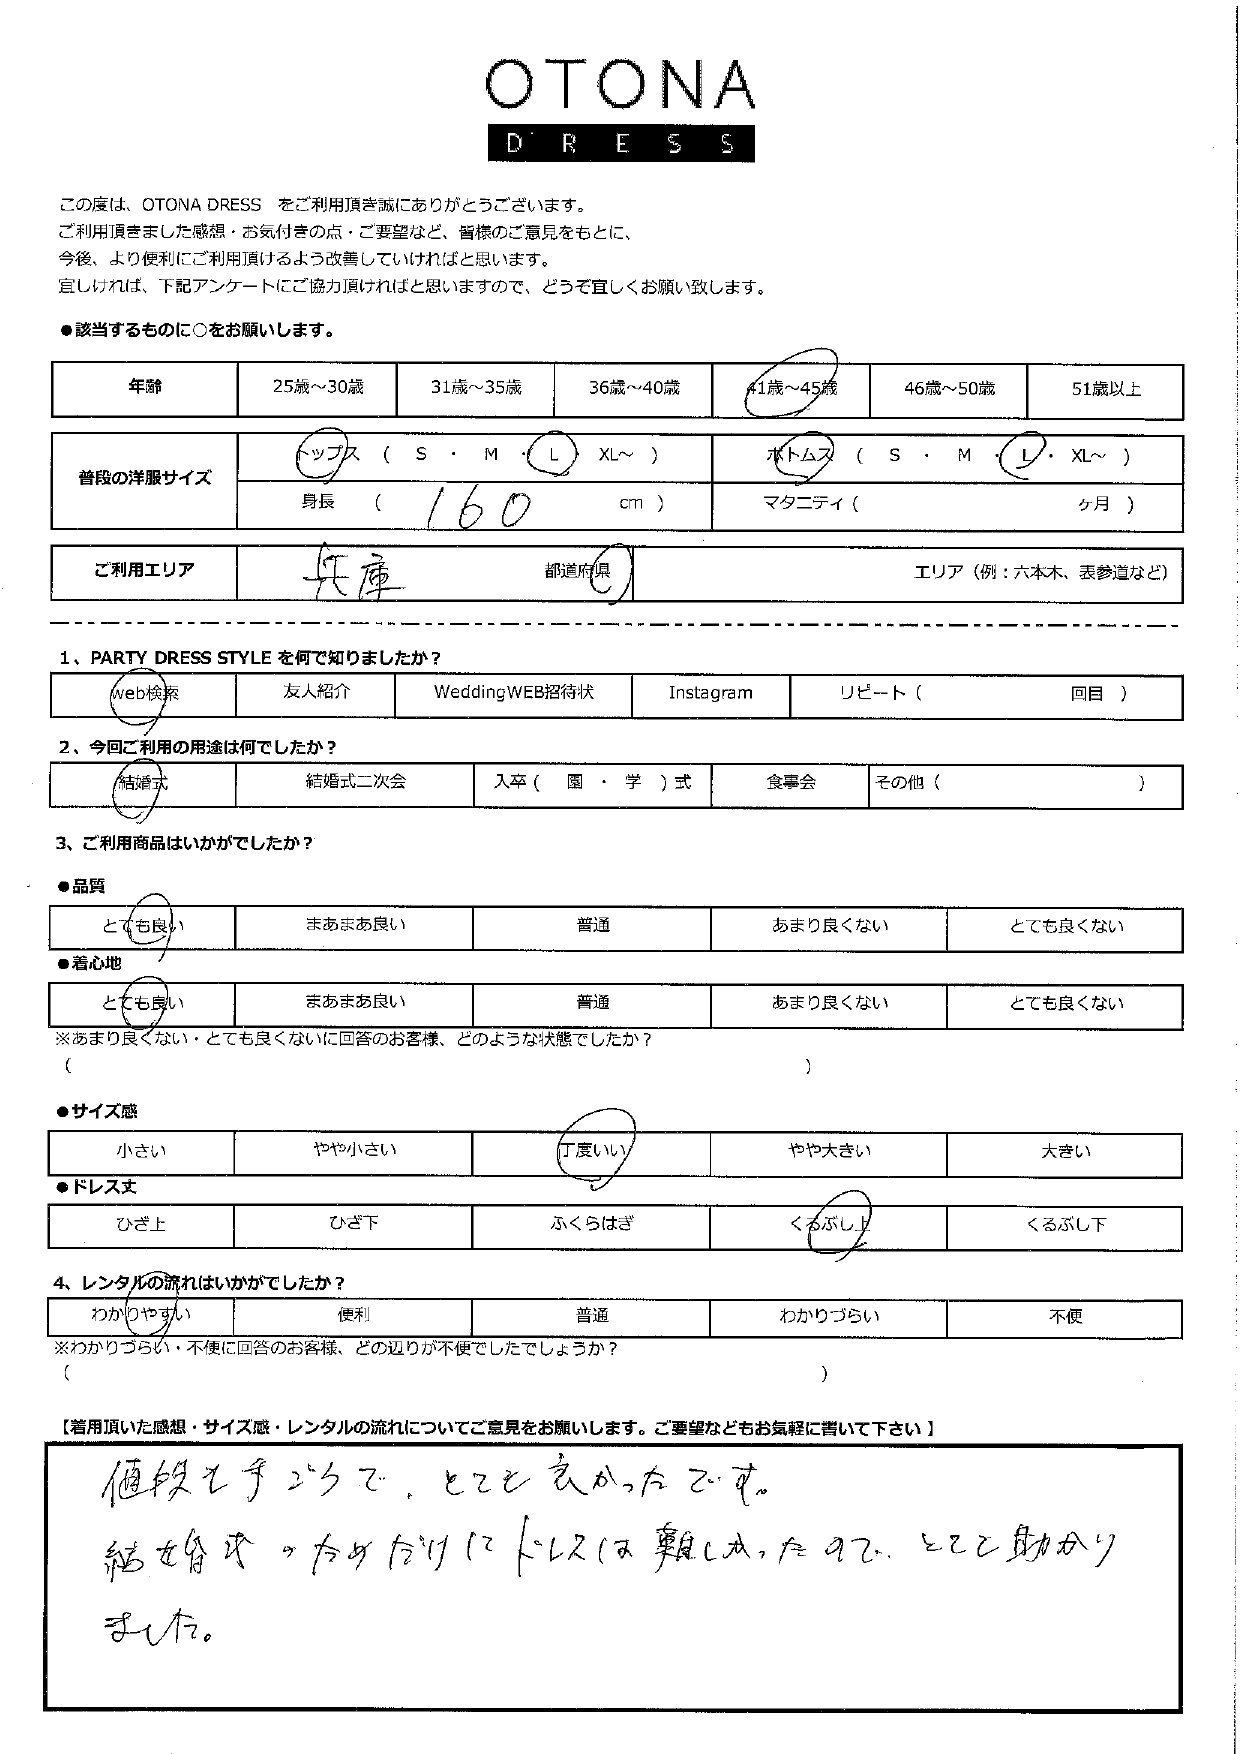 OTONA
DRESS
この度は、OTONA DRESS　をご利用頂き誠にありがとうございます。
ご利用頂きました感想・お気付きの点・ご要望など、皆様のご意見をもとに、
今後、より便利にご利用頂けるよう改善していければと思います。
宜しければ、下記アンケートにご協力頂ければと思いますので、どうぞ宜しくお願い致します。
●該当するものに○をお願いします。
年齢 25歳～30歳 31歳～35歳 36歳～40歳 41歳～45歳 46歳～50歳 51歳以上
普段の洋服サイズ トップス （ S ・ M ・ L ・ XL～ ） ボトムス （ S ・ M ・ L ・ XL～ ）
身長 （ 160 cm ） マタニティ（ ヶ月 ）
ご利用エリア 兵庫 都道府県 エリア（例：六本木、表参道など）
1、PARTY DRESS STYLE を何で知りましたか？
web検索 友人紹介 WeddingWEB招待状 Instagram リピート（ 回目 ）
2、今回ご利用の用途は何でしたか？
結婚式 結婚式二次会 入卒（ 園 ・ 学 ）式 食事会 その他（ ）
3、ご利用商品はいかがでしたか？
●品質
とても良い まあまあ良い 普通 あまり良くない とても良くない
●着心地
とても良い まあまあ良い 普通 あまり良くない とても良くない
※あまり良くない・とても良くないに回答のお客様、どのような状態でしたか？
（ ）
●サイズ感
小さい やや小さい 丁度いい やや大きい 大きい
●ドレス丈
ひざ上 ひざ下 ふくらはぎ くるぶし上 くるぶし下
4、レンタルの流れはいかがでしたか？
わかりやすい 便利 普通 わかりづらい 不便
※わかりづらい・不便に回答のお客様、どの辺りが不便でしたでしょうか？
（ ）
【着用頂いた感想・サイズ感・レンタルの流れについてご意見をお願いします。ご要望などもお気軽に書いて下さい】
値段も手ごろで、とても良かったです。
結婚式のためだけにドレスは難しかったので、とても助かり
ました。